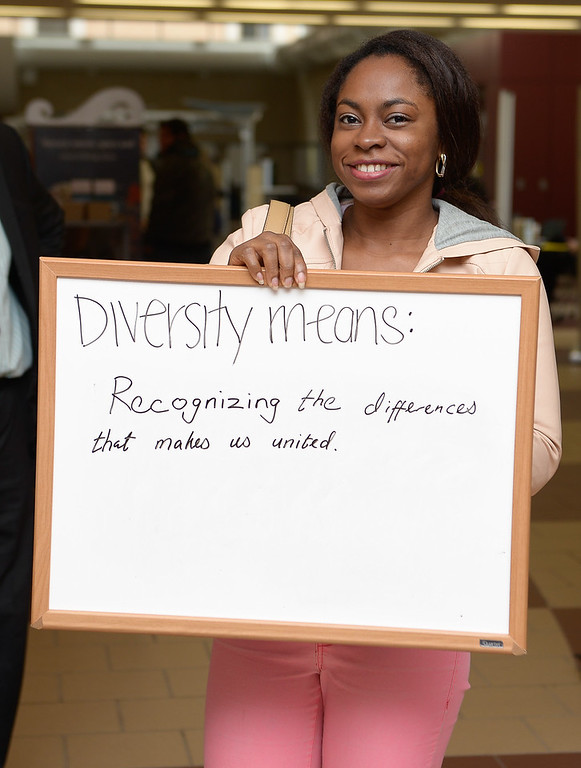 Diversity means:
Recognizing the differences
that makes us united.
Quartet